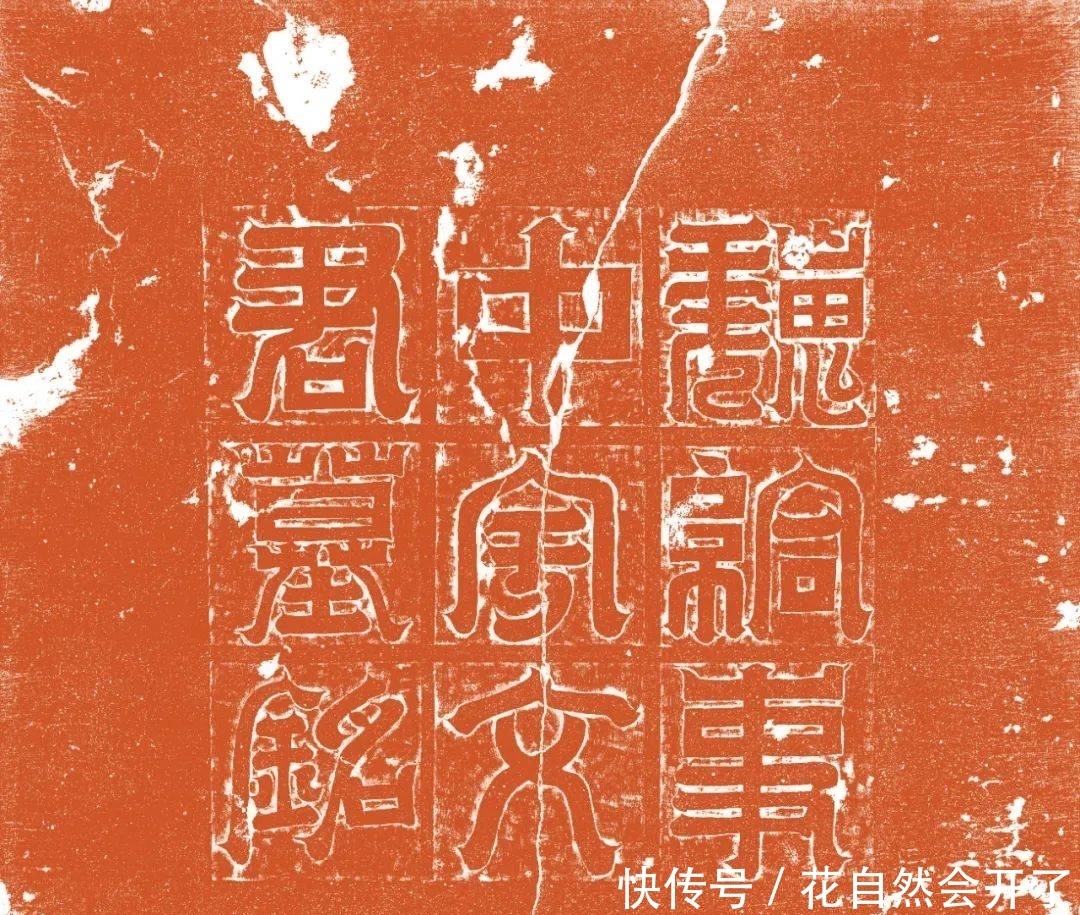 魏給事
中宇文
君墓銘
快传号 / 花自然会开了